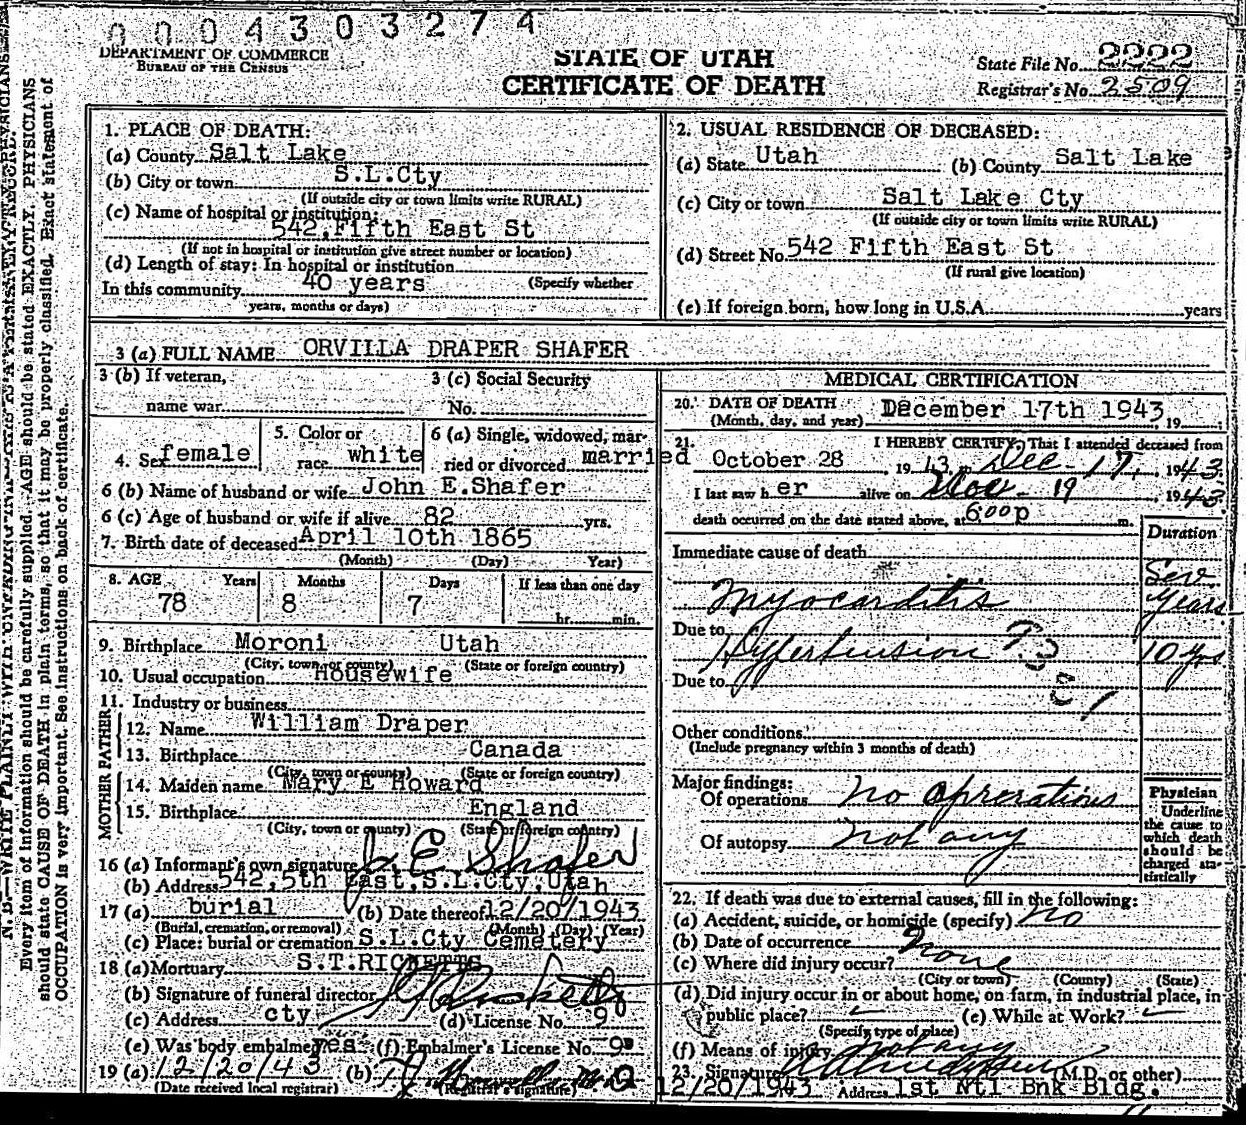 0004303274
DEPARTMENT OF COMMERCE
BUREAU OF THE CENSUS
STATE OF UTAH
CERTIFICATE OF DEATH
State File No. 2222
Registrar's No. 2509
N.B.—WRITE PLAINLY WITH
Every item of information should be carefully supplied. AGE should be stated EXACTLY. PHYSICIANS
should state CAUSE OF DEATH in plain terms, so that it may be properly classified. Exact statement of
OCCUPATION is very important. See instructions on back of certificate.
1. PLACE OF DEATH:
(a) County Salt Lake
(b) City or town S.L.Cty
(If outside city or town limits write RURAL)
(c) Name of hospital or institution:
542, Fifth East St
(If not in hospital or institution give street number or location)
(d) Length of stay: In hospital or institution
(Specify whether
In this community 40 years
years, months or days)
2. USUAL RESIDENCE OF DECEASED:
(a) State Utah (b) County Salt Lake
(c) City or town Salt Lake Cty
(If outside city or town limits write RURAL)
(d) Street No. 542 Fifth East St
(If rural give location)
(e) If foreign born, how long in U.S.A. years
3 (a) FULL NAME ORVILLA DRAPER SHAFER
3 (b) If veteran,
name war
3 (c) Social Security
No.
4. Sex female
5. Color or
race white
6 (a) Single, widowed, mar-
ried or divorced married
6 (b) Name of husband or wife John E.Shafer
6 (c) Age of husband or wife if alive 82 yrs.
7. Birth date of deceased April 10th 1865
(Month) (Day) Year)
8. AGE Years Months Days If less than one day
78 8 7 hr. min.
9. Birthplace Moroni Utah
(City, town or county) (State or foreign country)
10. Usual occupation Housewife
11. Industry or business
FATHER
12. Name William Draper
13. Birthplace Canada
(City, town or county) (State or foreign country)
MOTHER
14. Maiden name Mary E Howard
15. Birthplace England
(City, town or county) (State or foreign country)
16 (a) Informant's own signature J. E. Shafer
(b) Address 542, 5th East, S.L.Cty, Utah
17 (a) burial (b) Date thereof 12/20/1943
(Burial, cremation, or removal) (Month) (Day) (Year)
(c) Place: burial or cremation S.L.Cty Cemetery
18 (a) Mortuary S.T.RICKETTS
(b) Signature of funeral director
(c) Address cty (d) License No. 9
(e) Was body embalmed yes (f) Embalmer's License No. 9
19 (a) 12/20/43 (b) M.D.
(Date received local registrar) (Registrar's signature)
MEDICAL CERTIFICATION
20. DATE OF DEATH December 17th 1943, 19
(Month, day, and year)
21. I HEREBY CERTIFY, That I attended deceased from
October 28, 19 Dec - 17, 1943.
I last saw her alive on Nov - 19, 1943.
death occurred on the date stated above, at 6:00p m.
Duration
Immediate cause of death
Myocarditis Sev Years
Due to
Hypertension 10 yrs
Due to
Other conditions
(Include pregnancy within 3 months of death)
Major findings:
Of operations no oprorations
Of autopsy not any
Physician
Underline
the cause to
which death
should be
charged sta-
tistically
22. If death was due to external causes, fill in the following:
(a) Accident, suicide, or homicide (specify) no
(b) Date of occurrence none
(c) Where did injury occur?
(City or town) (County) (State)
(d) Did injury occur in or about home, on farm, in industrial place, in
public place? (e) While at Work?
(Specify type of place)
(f) Means of injury not any
23. Signature (M.D. or other)
12/20/1943 Address 1st Ntl Bnk Bldg.